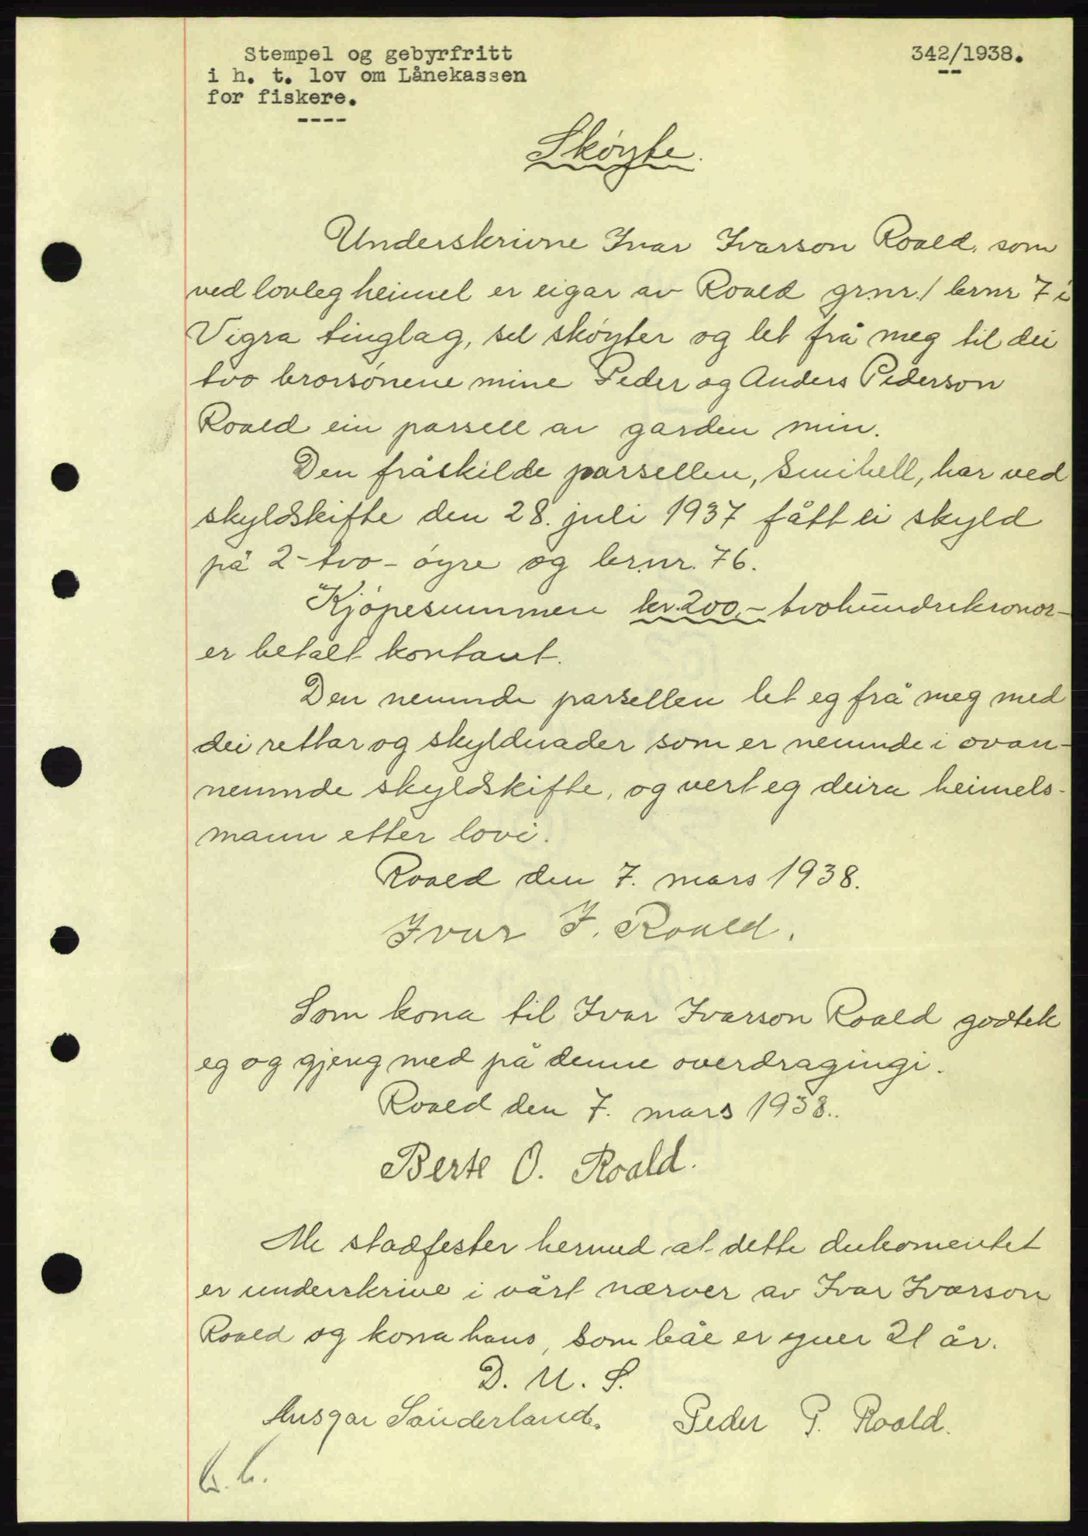 Stempel og gebyrfritt
i h. t. lov om Lånekassen
for fiskere.
342/1938.
Skøyte.
Underskrivne Ivar Ivarson Roald, som
ved lovleg heimel er eigar av Roald grnr. 1 brnr 7 i
Vigra tinglag, sel skøyter og let frå meg til dei
tvo brorsønene mine Peder og Anders Pederson
Roald ein parsell av garden min.
Den fråskilde parsellen, Smihell, har ved
skyldskifte den 28. juli 1937 fått ei skyld
på 2 - tvo - øyre og brnr. 76.
Kjøpesummen kr. 200,- tvohundrekronor-
er betalt kontant.
Den nemnde parsellen let eg frå meg med
dei rettar og skyldnader som er nemnde i ovan-
nemnde skyldskifte, og vert eg deira heimels-
mann etter lovi.
Roald den 7. mars 1938.
Ivar I. Roald.
Som kona til Ivar Ivarson Roald godtek
eg og gjeng med på denne overdragingi.
Roald den 7. mars 1938.
Berte O. Roald.
Me stadfester hermed at dette dukomentet
er underskrive i vårt nærver av Ivar Ivarson
Roald og kona hans, som båe er yver 21 år.
D. U. S.
Ansgar Sønderland. Peder P. Roald.